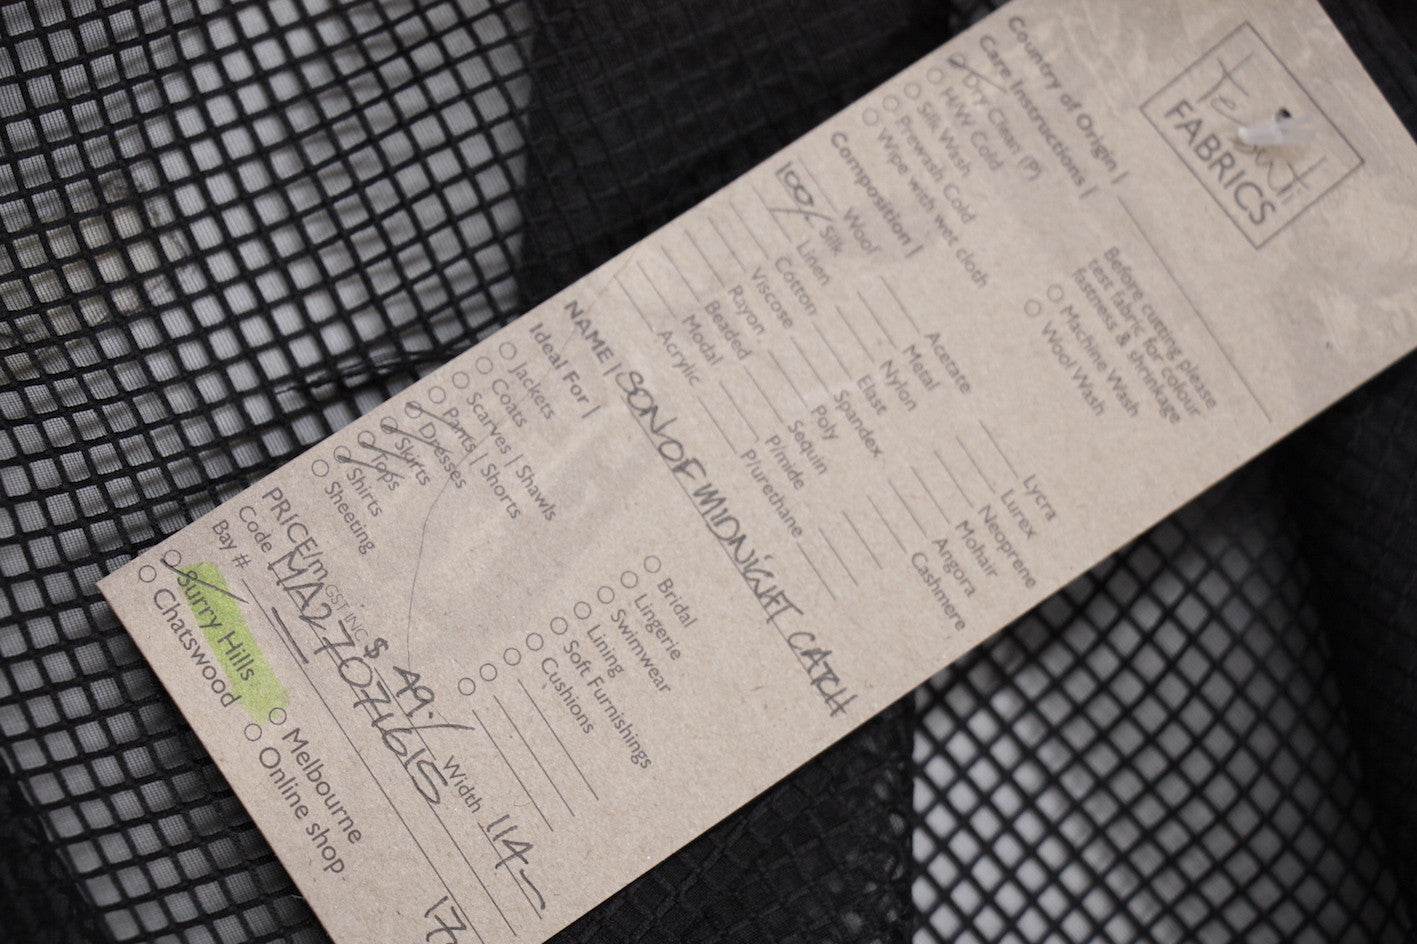 FABRICS
Country of Origin |
Care Instructions |
Dry Clean (P)
H/W Cold
Silk Wash
Prewash Cold
Wipe with wet cloth
Before cutting please
test fabric for colour
fastness & shrinkage
Machine Wash
Wool Wash
Composition |
Wool Acetate Lycra
100% Silk Metal Lurex
Linen Nylon Neoprene
Cotton Elast Mohair
Viscose Spandex Angora
Rayon Poly Cashmere
Beaded Sequin
Modal P/mide
Acrylic P/urethane
NAME | SON OF MIDNIGHT CATCH
Ideal For |
Jackets Bridal
Coats Lingerie
Scarves | Shawls Swimwear
Pants | Shorts Lining
Dresses Soft Furnishings
Skirts Cushions
Tops
Shirts
Sheeting
PRICE/m GST INC $ 49.- Width 114
Code MA27074615
Bay #
Surry Hills Melbourne
Chatswood Online shop